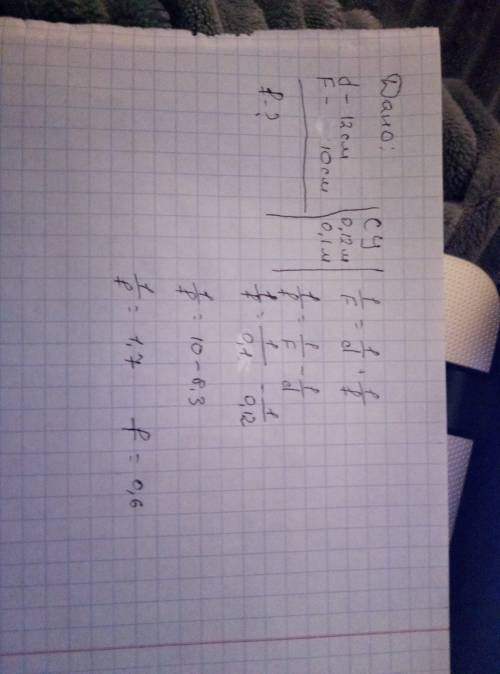 Дано:
d - 12см
F - 10см
f - ?
СИ
0,12м
0,1м
1/F = 1/d + 1/f
1/f = 1/F - 1/d
1/f = 1/0,1 - 1/0,12
1/f = 10 - 8,3
1/f = 1,7 f = 0,6